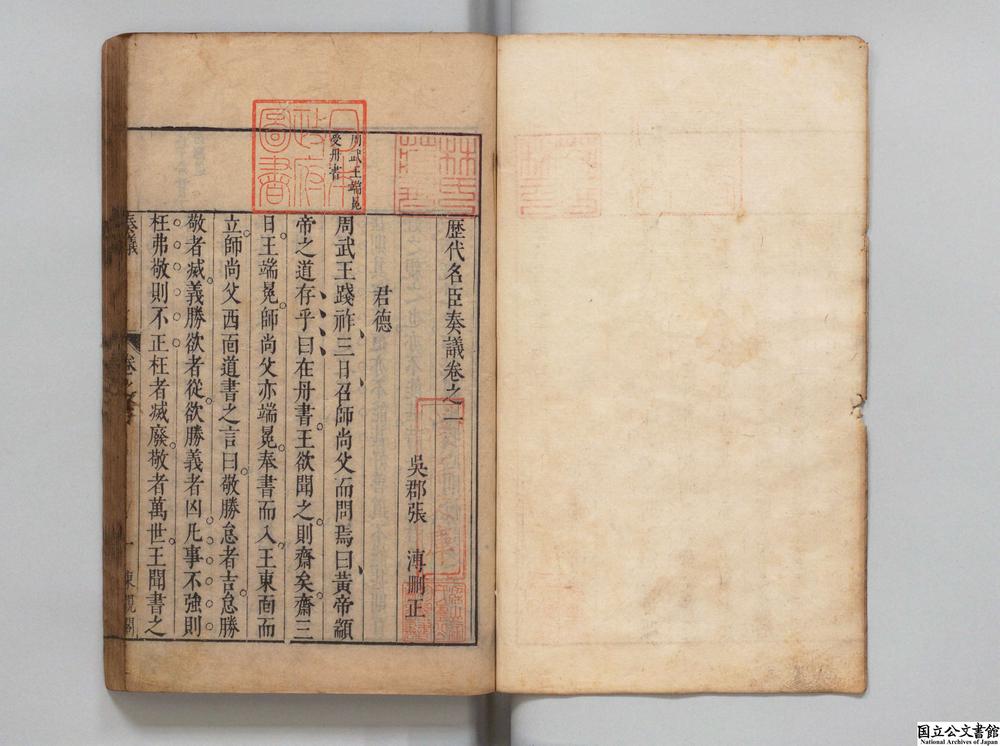 歷代名臣奏議卷之一
吳郡張 溥刪正
君德
周武王端冕
受丹書
周武王踐祚三日召師尚父而問焉曰黃帝顓
帝之道存乎曰在丹書王欲聞之則齋矣齋三
日王端冕師尚父亦端冕奉書而入王東面而
立師尚父西面道書之言曰敬勝怠者吉怠勝
敬者滅義勝欲者從欲勝義者凶凡事不強則
枉弗敬則不正枉者滅廢敬者萬世王聞書之
奏議
卷之一
一
東觀閣
日本
政府
圖書
林氏
藏書
国立公文書館
National Archives of Japan